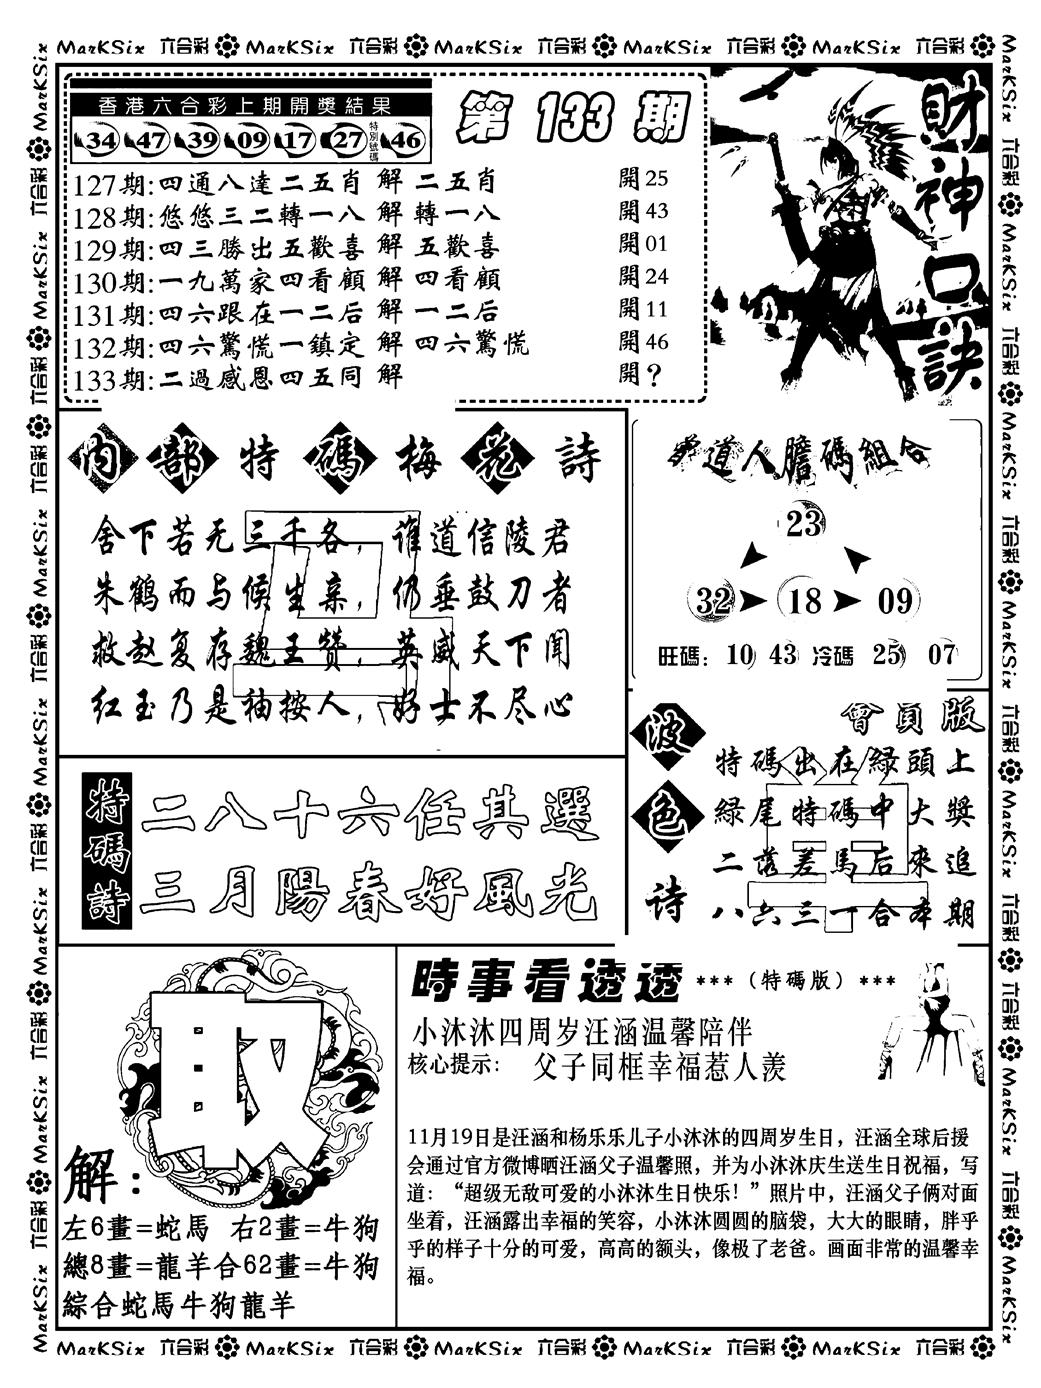 MarKSix 六合彩 MarKSix 六合彩 MarKSix 六合彩 MarKSix 六合彩 MarKSix 六合彩
香港六合彩上期開獎結果
34 47 39 09 17 27 特別號碼 46
第 133 期
財神口訣
127期:四通八達二五肖 解 二五肖 開 25
128期:悠悠三二轉一八 解 轉一八 開 43
129期:四三勝出五歡喜 解 五歡喜 開 01
130期:一九萬家四看顧 解 四看顧 開 24
131期:四六跟在一二后 解 一二后 開 11
132期:四六驚慌一鎮定 解 四六驚慌 開 46
133期:二過感恩四五同 解 開 ?
內部特碼梅花詩
舍下若无三千各，谁道信陵君
朱鹤而与候生亲，仍垂鼓刀者
救赵复存魏王赞，英威天下闻
红玉乃是袖按人，好士不尽心
道人膽碼組合
23
32 18 09
旺碼：10 43 冷碼 25 07
特碼詩
二八十六任其選
三月陽春好風光
波色诗
會員版
特碼出在綠頭上
綠尾特碼中大獎
二落差馬后來追
八六三一合本期
取
解：
左6畫=蛇馬 右2畫=牛狗
總8畫=龍羊合62畫=牛狗
綜合蛇馬牛狗龍羊
時事看透透 ***（特碼版）***
小沐沐四周岁汪涵温馨陪伴
核心提示： 父子同框幸福惹人羡
11月19日是汪涵和杨乐乐儿子小沐沐的四周岁生日，汪涵全球后援
会通过官方微博晒汪涵父子温馨照，并为小沐沐庆生送生日祝福，写
道：“超级无敌可爱的小沐沐生日快乐！”照片中，汪涵父子俩对面
坐着，汪涵露出幸福的笑容，小沐沐圆圆的脑袋，大大的眼睛，胖乎
乎的样子十分的可爱，高高的额头，像极了老爸。画面非常的温馨幸
福。
MarKSix 六合彩 MarKSix 六合彩 MarKSix 六合彩 MarKSix 六合彩 MarKSix 六合彩